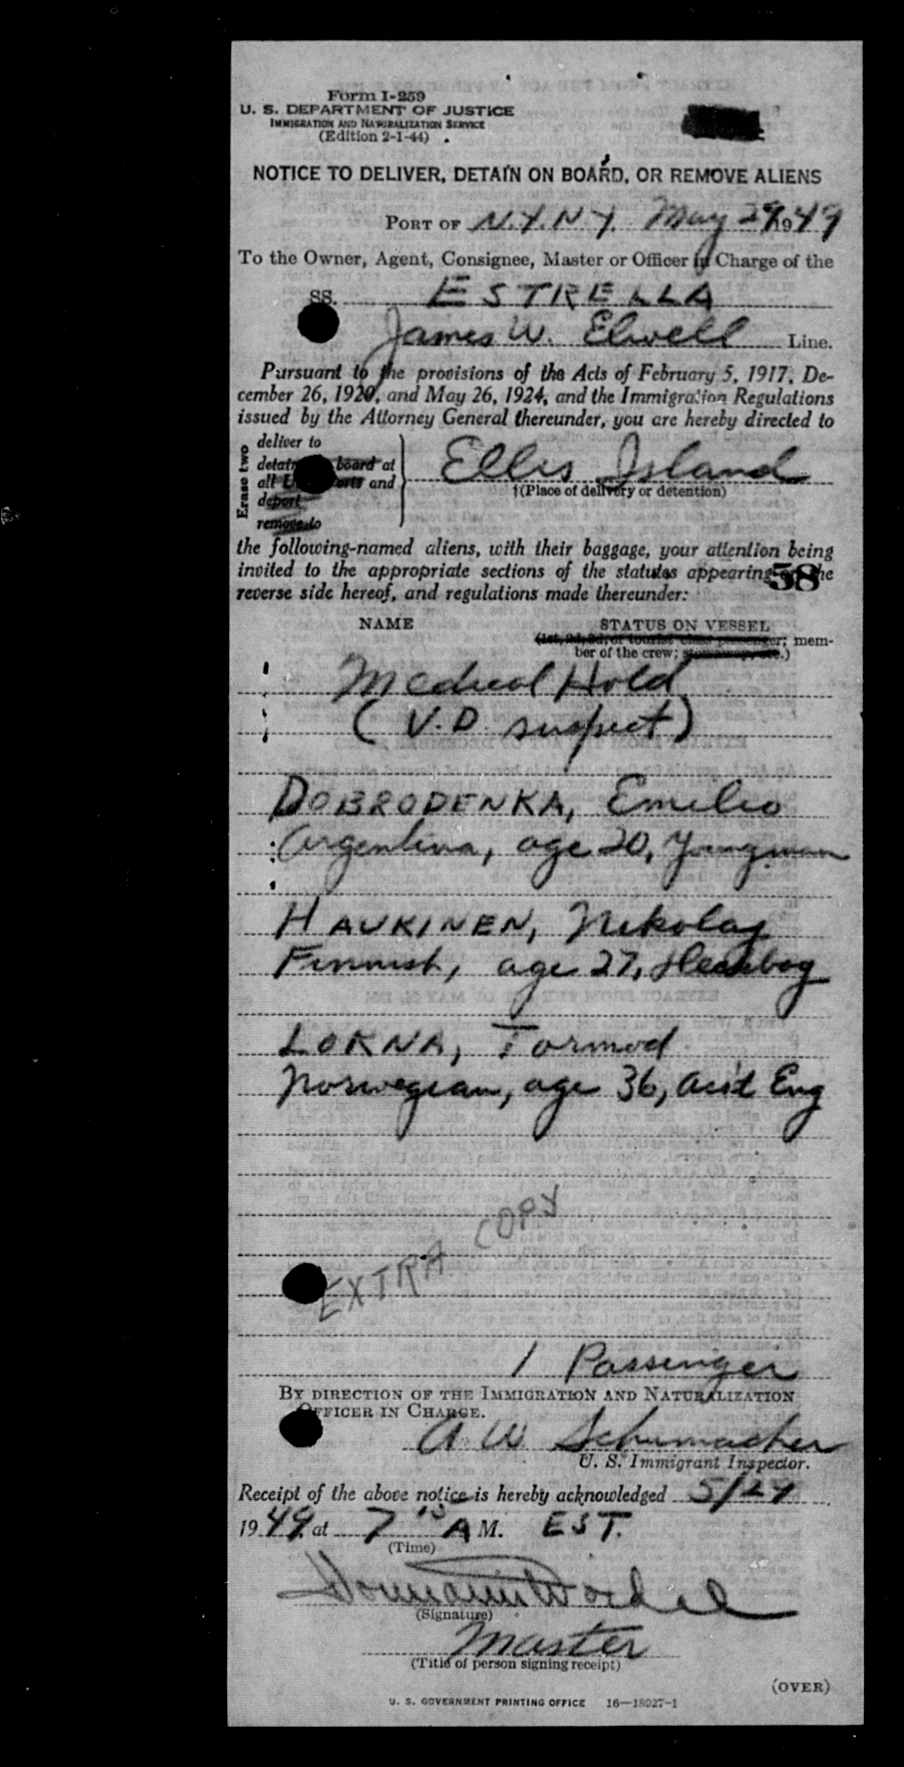 Form I-259
U. S. DEPARTMENT OF JUSTICE
IMMIGRATION AND NATURALIZATION SERVICE
(Edition 2-1-44)
NOTICE TO DELIVER, DETAIN ON BOARD, OR REMOVE ALIENS
PORT OF N.Y.N.Y. May 29, 1949
To the Owner, Agent, Consignee, Master or Officer in Charge of the
SS. ESTRELLA
James W. Elwell Line.
Pursuant to the provisions of the Acts of February 5, 1917, De-
cember 26, 1920, and May 26, 1924, and the Immigration Regulations
issued by the Attorney General thereunder, you are hereby directed to
Erase two
deliver to
detain board at
all and
deport
remove to
Ellis Island
†(Place of delivery or detention)
the following-named aliens, with their baggage, your attention being
invited to the appropriate sections of the statutes appearing the
58
reverse side hereof, and regulations made thereunder:
NAME STATUS ON VESSEL
mem-
ber of the crew;
Medical Hold
(V.D. suspect)
DOBRODENKA, Emilio
Argentina, age 20, Youngman
HAUKINEN, Nikolay
Finnish, age 27,
LORNA, Tormod
Norwegian, age 36, Ass't Eng
EXTRA COPY
1 Passenger
BY DIRECTION OF THE IMMIGRATION AND NATURALIZATION
OFFICER IN CHARGE.
A W Schumacher
U. S. Immigrant Inspector.
Receipt of the above notice is hereby acknowledged 5/29
1949 at 7 15 A M. EST.
(Time)
(Signature)
Master
(Title of person signing receipt)
(OVER)
U. S. GOVERNMENT PRINTING OFFICE 16—18027-1